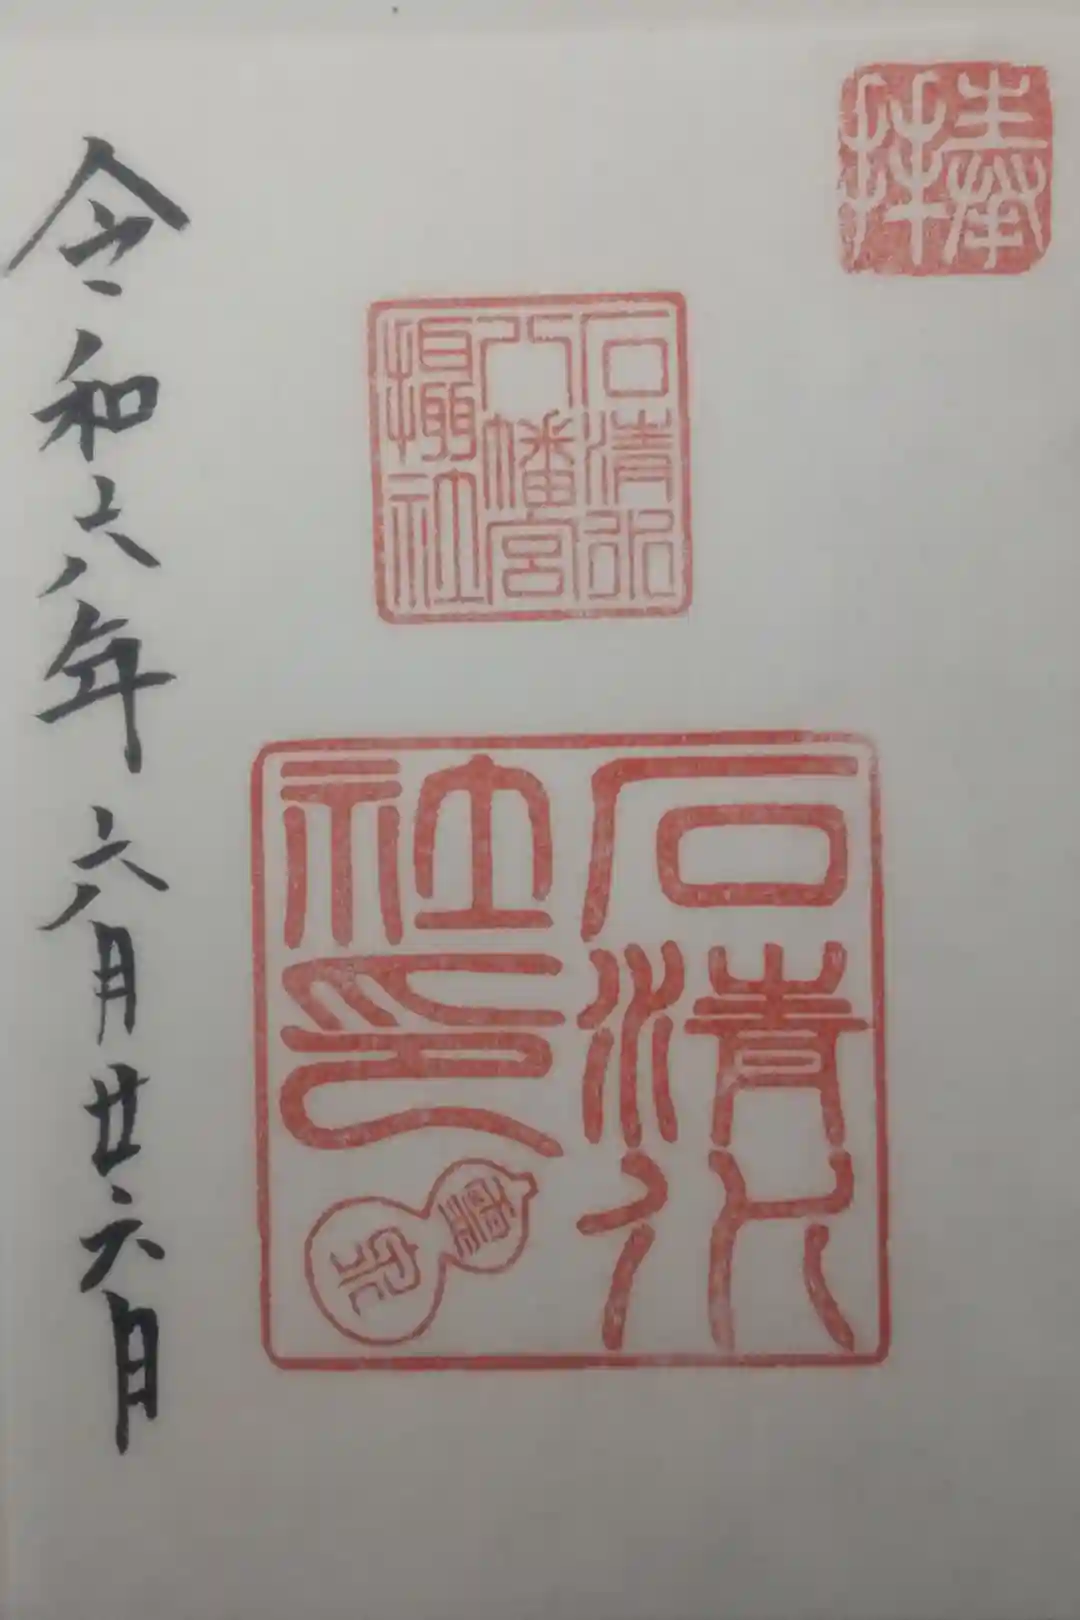 奉拝
石清水
八幡宮
攝社
石清水
社印
靈泉
令和六年六月廿六日